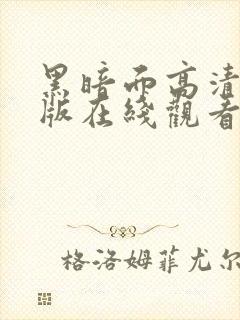 黑暗而高清
版在綫觀看
格洛姆菲尤尔